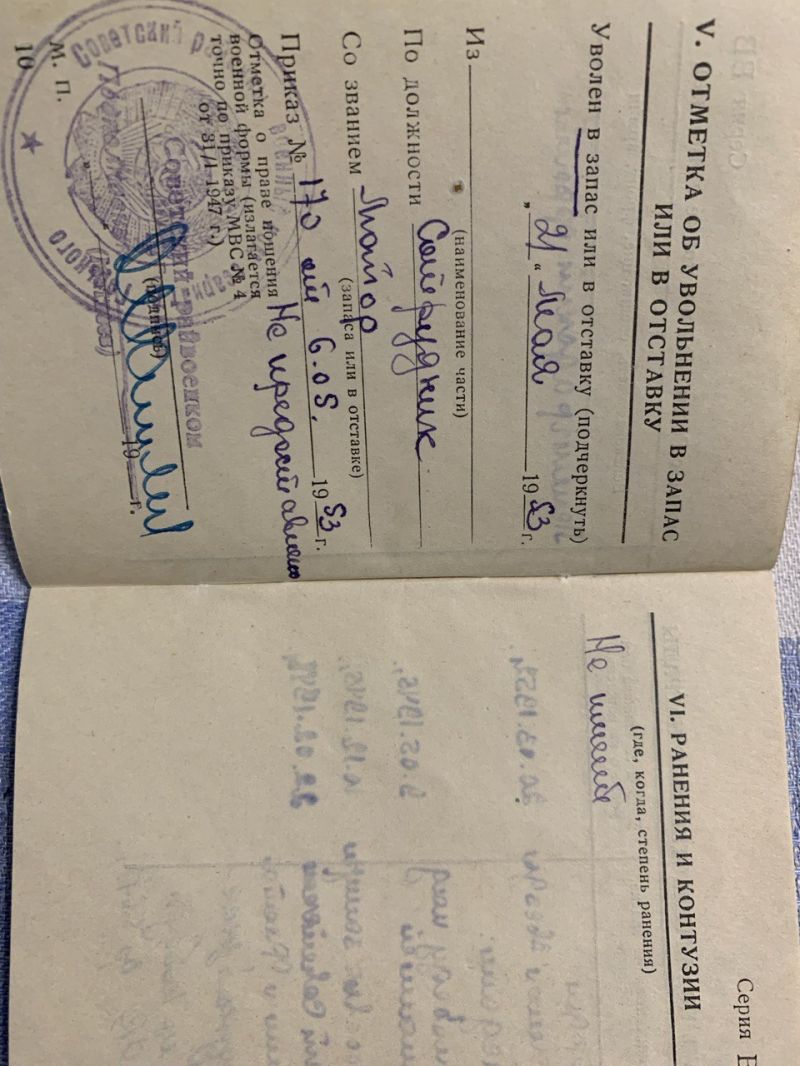 V. ОТМЕТКА ОБ УВОЛЬНЕНИИ В ЗАПАС
ИЛИ В ОТСТАВКУ
Уволен в запас или в отставку (подчеркнуть)
„21“ мая 1953 г.
Из
(наименование части)
По должности Сотрудник
Со званием Майор
(запаса или в отставке)
Приказ № 170 от 6.05. 1953 г.
Отметка о праве ношения
военной формы (излагается
точно по приказу МВС № 4
от 31/I-1947 г.)
Не представлено
Советский райвоенком
(подпись)
„ “ 19 г.
М. П.
10
Серия В
VI. РАНЕНИЯ И КОНТУЗИИ
(где, когда, степень ранения)
Не имеет